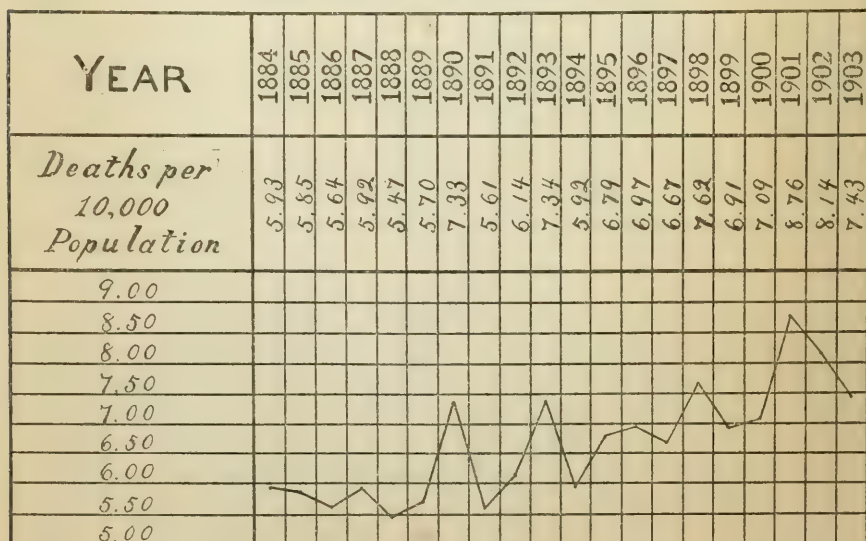 YEAR 1884 1885 1886 1887 1888 1889 1890 1891 1892 1893 1894 1895 1896 1897 1898 1899 1900 1901 1902 1903
Deaths per
10,000
Population
5.93 5.85 5.64 5.92 5.47 5.70 7.33 5.61 6.14 7.34 5.92 6.79 6.97 6.67 7.62 6.91 7.09 8.76 8.14 7.43
9.00
8.50
8.00
7.50
7.00
6.50
6.00
5.50
5.00